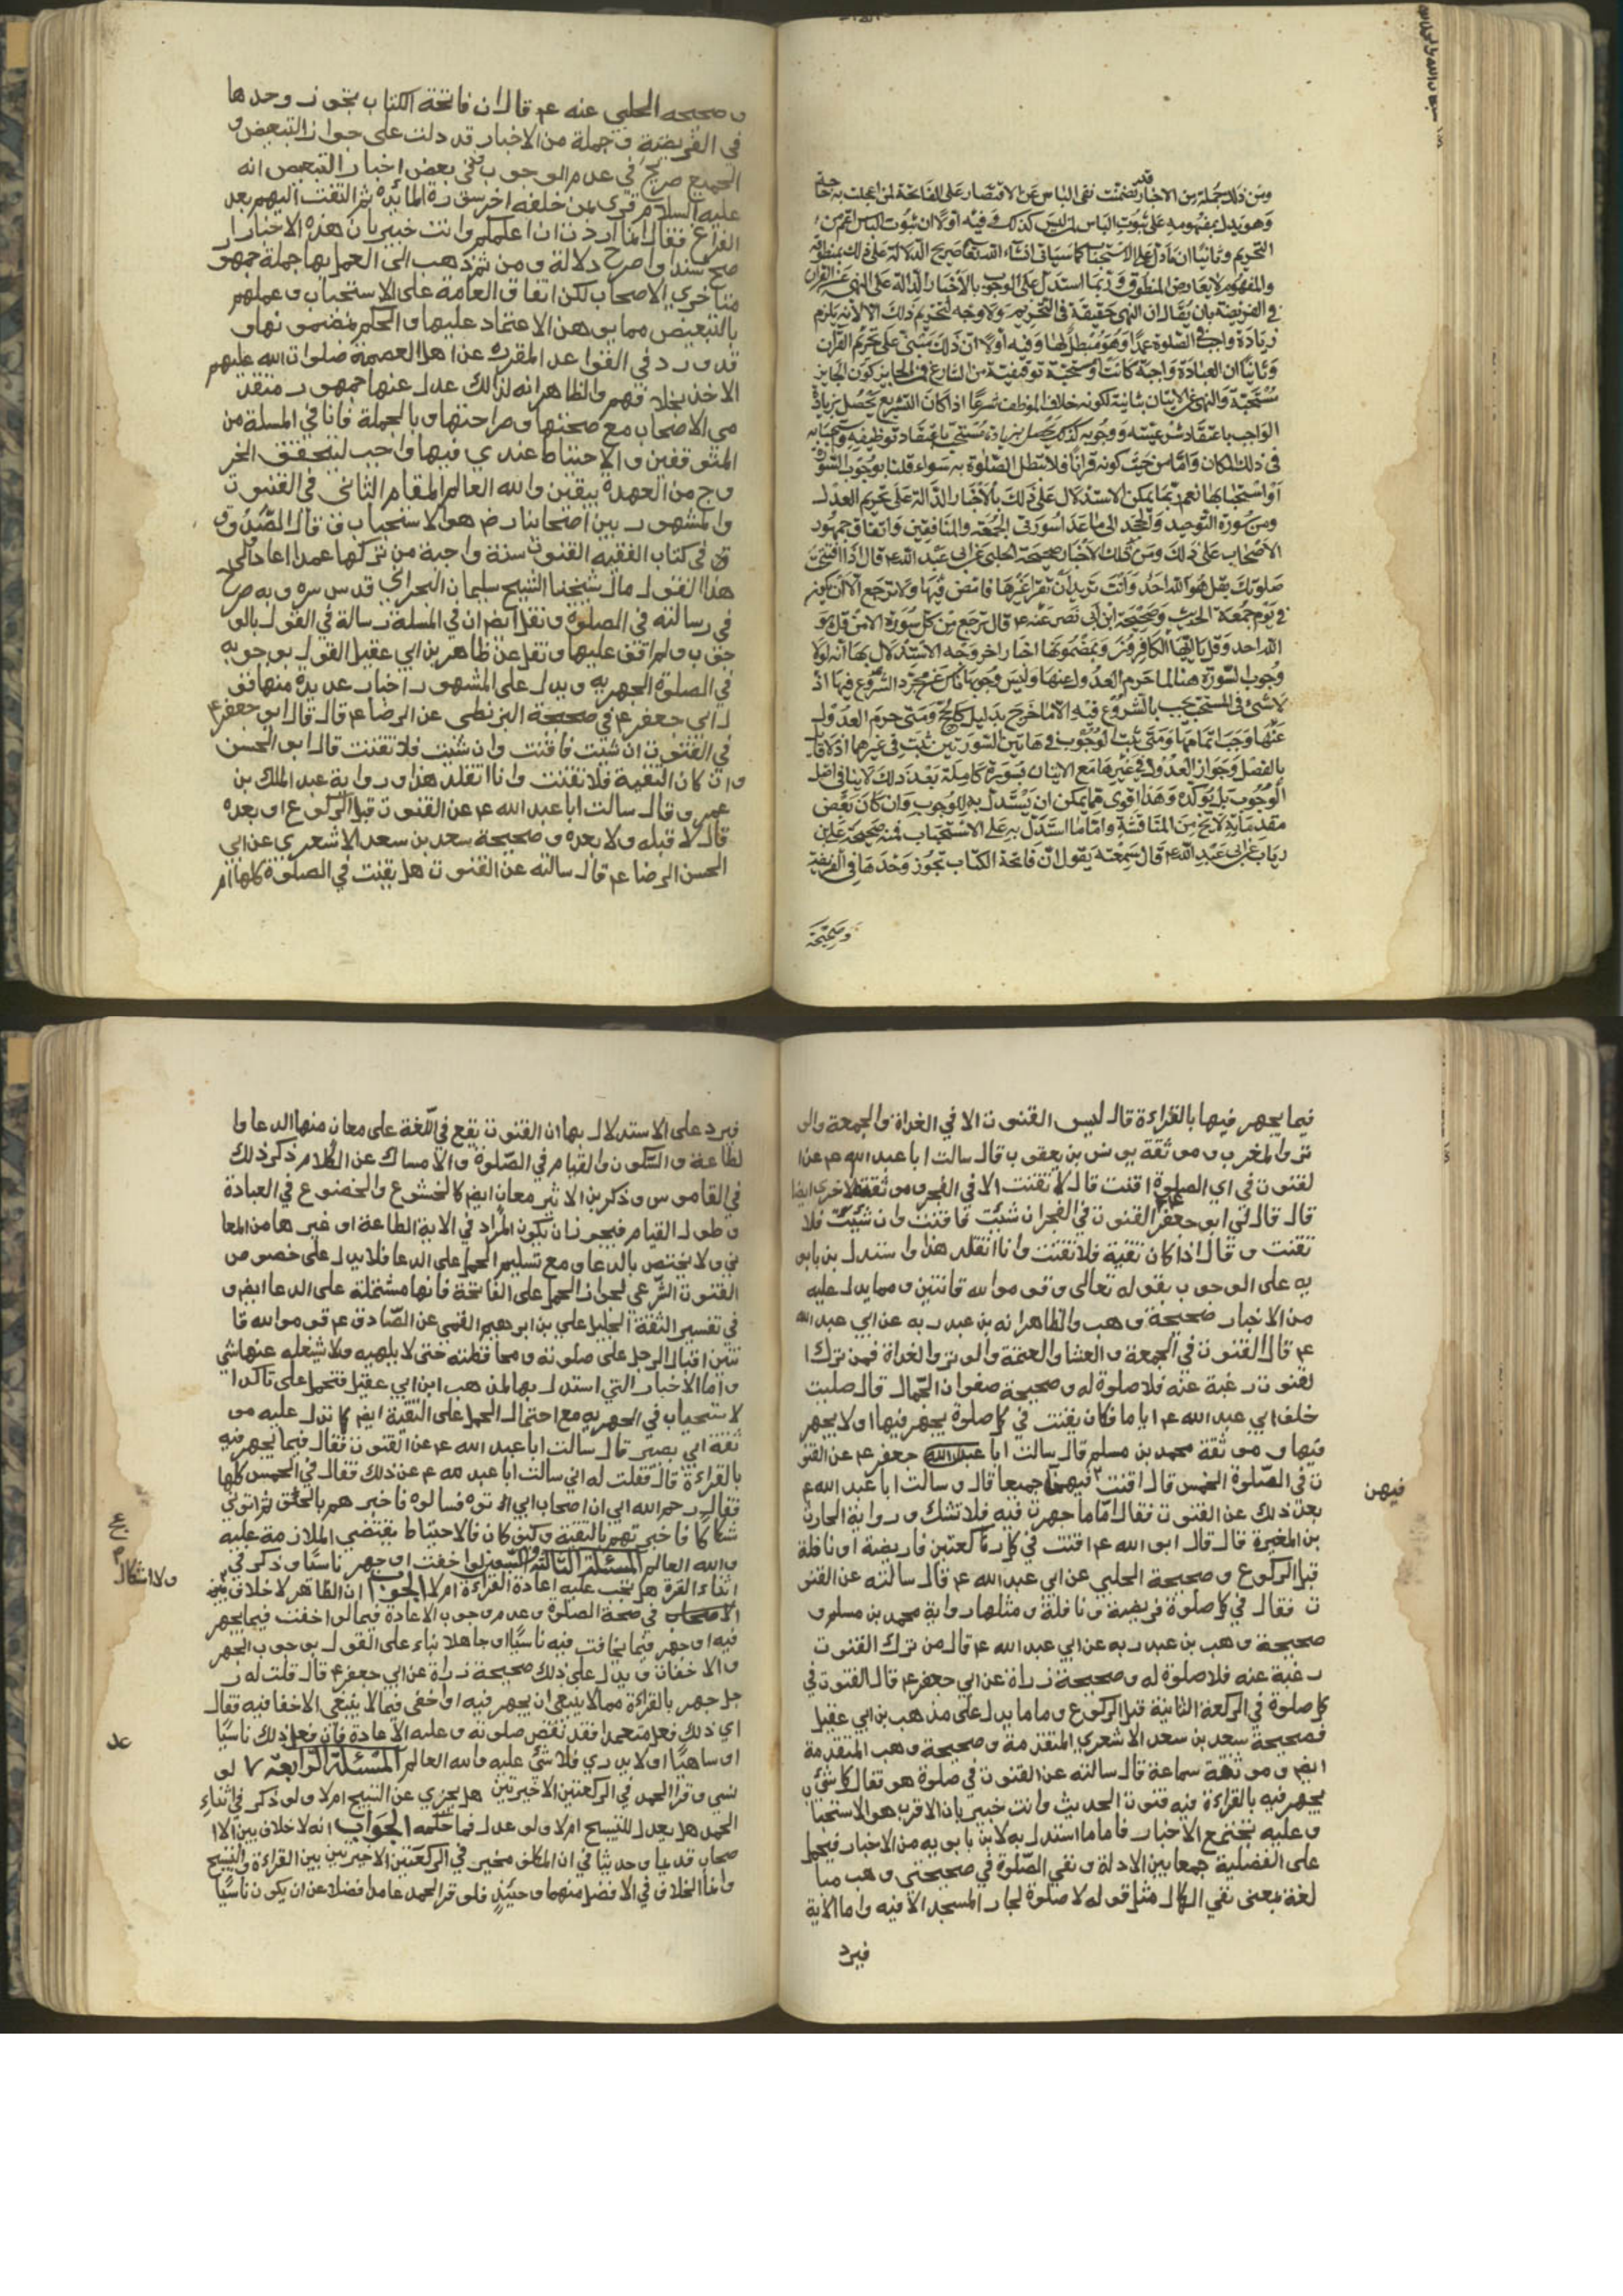 ومن ذلك جملة من الاخبار قد تضمنت نفى الباس عن الاقتصار على الفاتحة لمن اعجلت به حاجة
وهو يدل بمفهومه على ثبوت الباس لمن ليس كذلك وفيه اولا ان ثبوت الباس اعم من
التحريم وثانيا ان ما دل على الاستحباب كما سياتى انشاء الله تعا صريح الدلالة على ذلك بمنطوقه
والمفهوم لا يعارض المنطوق وربما استدل على الوجوب بالاخبار الدالة على النهى عن القران
فى الفريضة بان يقال ان النهى حقيقة فى التحريم ولا وجه لتحريم ذلك الا لانه يلزم
زيادة واجب فى الصلوة عمدا وهو مبطل لها وفيه اولا ان ذلك مبتنى على تحريم القران
وثانيا ان العبادة واجبة كانت او مستحبة توقيفية من الشارع فمن الجايز كون الجايز
مستحبة والنهى عن الاتيان بثانية لكونه خلاف الموظف شرعا اذا كان التشريع يحصل بزيادة
الواجب باعتقاد شرعيته ووجوبه كذلك يحصل بزيادة مستحب باعتقاد توظيفه واستحبابه
فى ذلك المكان واما من حيث كونه قرانا فلا تبطل الصلوة به سواء قلنا بوجوب السورة
او استحبابها نعم ربما يمكن الاستدلال على ذلك بالاخبار الدالة على تحريم العدول
ومن سورة التوحيد والجحد الى ما عدا سورتى الجمعة والمنافقين واتفاق جمهور
الاصحاب على ذلك ومن تلك الاخبار صحيحة الحلبى عن ابى عبد الله ع قال اذا افتتحت
صلوتك بقل هو الله احد وانت تريد ان تقرا غيرها فامض فيها ولا ترجع الا ان تكون
فى يوم جمعة الحديث وصحيحة ابن ابى نصر عنه ع قال ترجع من كل سورة الا من قل هو
الله احد وقل يا ايها الكافرون وبمضمونها اخبار اخر وجه الاستدلال بها انه لولا
وجوب السورة هنا لما حرم العدول عنها وليس وجوبها ناش عن مجرد الشروع فيها اذ
لا شئ فى المستحب يجب بالشروع فيه الا ما خرج بدليل كالحج ومتى حرم العدول
عنها وجب اتمامها ومتى ثبت الوجوب فى هاتين السورتين ثبت فى غيرهما اذ لا قائل
بالفصل وجواز العدول فى غيرها مع الاتيان بسورة كاملة بعد ذلك لا ينافى اصل
الوجوب بل يوكده وهذا اقوى ما يمكن ان يستدل به للوجوب وان كان بعض
مقدماته لا يخ من المناقشة واما ما استدل به على الاستحباب فمنه صحيحة على بن
رياب عن ابى عبد الله ع قال سمعته يقول ان فاتحة الكتاب تجوز وحدها فى الفريضة
وصحيحة
و صحيحه الحلبي عنه ع قال ان فاتحة الكتاب تجوز وحدها
في الفريضة و جملة من الاخبار قد دلت على جواز التبعيض و
الجميع صريح في عدم الوجوب ففى بعض اخبار التبعيض انه
عليه السلام قرى بمن خلفه اخر سورة المائدة ثم التفت اليهم بعد
الفراغ فقال انما اردت ان اعلمكم وانت خبير بان هذه الاخبار ا
صح سند و اصرح دلالة و من ثم ذهب الى العمل بها جملة جمهو
متاخري الاصحاب لكن اتفاق العامة على الاستحباب و عملهم
بالتبعيض مما يوهن الاعتماد عليها و الحكم بمضمونها و
قد ورد في القواعد المقررة عن اهل العصمة صلوات الله عليهم
الاخذ بخلافهم والظاهر انه لذالك عدل عنها جمهور متقد
مي الاصحاب مع صحتها و صراحتها و بالجملة فانا في المسلة من
المتوقفين و الاحتياط عندي فيها واجب لتحقق الخر
وج من العهدة بيقين والله العالم المقام الثانى في القنوت
و المشهور بين اصحابنا رض هو الاستحباب و قال الصدوق
ق في كتاب الفقيه القنوت سنة واجبة من تركها عمدا اعاد الى
هذا القول مال شيخنا الشيخ سليمان البحراني قدس سره و به صرح
في رسالته في الصلوة و نقل ايضا ان في المسلة رسالة في القول بالو
جوب و لم اقف عليها و نقل عن ظاهر بن ابي عقيل القول بوجوبه
في الصلوة الجهريه و يدل على المشهور اخبار عديدة منها قو
ل ابى جعفر ع في صحيحة البزنطى عن الرضا ع قال قال ابو جعفر ع
في القنوت ان شئت فاقنت وان شئت فلا تقنت قال ابو الحسن
و ان كان التقية فلا تقنت و انا اتقلد هذا و رواية عبد الملك بن
عمرو قال سالت ابا عبد الله ع عن القنوت قبل الركوع او بعده
قال لا قبله ولا بعده و صحيحة سعد بن سعد الاشعري عن ابي
الحسن الرضا ع قال سالته عن القنوت هل يقنت في الصلوة كلها ام
فيما يجهر فيها بالقراءة قال ليس القنوت الا في الغداة والجمعة والو
تر والمغرب و موثقة يونس بن يعقوب قال سالت ابا عبد الله ع عن ا
لقنوت في اي الصلوة اقنت قال لا تقنت الا في الفجر و موثقة الاخرى ايضا
قال قال لي ابو جعفر ع القنوت في الفجر ان شئت فاقنت وان شئت فلا
تقنت و قال اذا كان تقية فلا تقنت وانا اتقلد هذا و استدل بن بابو
يه على الوجوب بقوله تعالى وقوموا لله قانتين و مما يدل عليه
من الاخبار صحيحة وهب والظاهر انه بن عبد ربه عن ابي عبد الله
ع قال القنوت في الجمعة و العشا و العتمة والوتر والغداة فمن ترك ا
لقنوت رغبة عنه فلا صلوة له و صحيحة صفوان الجمال قال صليت
خلف ابي عبد الله ع اياما فكان يقنت في كل صلوة يجهر فيها او لا يجهر
فيها و موثقة محمد بن مسلم قال سالت ابا عبد الله جعفر ع عن القنو
ت في الصلوة الخمس قال اقنت فيهن جميعا قال و سالت ابا عبد الله ع
فيهن
بعد ذلك عن القنوت فقال اما ما جهرت فيه فلا تشك و رواية الحارث
بن المغيرة قال قال ابو الله ع اقنت في كل ركعتين فاريضة او نافلة
قبل الركوع و صحيحة الحلبي عن ابي عبد الله ع قال سالته عن القنو
ت فقال في كل صلوة فريضة و نافلة و مثلها رواية محمد بن مسلم و
صحيحة وهب بن عبد ربه عن ابي عبد الله ع قال من ترك القنوت
رغبة عنه فلا صلوة له و صحيحة زراة عن ابي جعفر ع قال القنوت في
كل صلوة في الركعة الثانية قبل الركوع و ما ما يدل على مذهب بن ابي عقيل
فصحيحة سعد بن سعد الاشعري المتقدمة و صحيحة وهب المتقدمة
ايض و موثقة سماعة قال سالته عن القنوت في صلوة هو فقال كل شئ
يجهر فيه بالقراءة فيه قنوت الحديث وانت خبير بان الاقرب هو الاستحبا
و عليه تجتمع الاخبار فاما ما استدل به لابن بابويه من الاخبار فيحمل
على الفضلية جمعا بين الادلة و نفي الصلوة في صحيحتى وهب مبا
لغة بمعنى نفي الكمال مثل قوله لا صلوة لجار المسجد الا فيه واما الاية
فيرد
فيرد على الاستدلال بها ان القنوت يقع في اللغة على معان منها الدعا وا
لطاعة و السكون والقيام في الصلوة و الامساك عن الكلام ذكر ذلك
في القاموس و ذكر بن الاثير معان ايض كالخشوع والخضوع في العبادة
و طول القيام فيجوز ان يكون المراد في الاية الطاعة او غيرها من المعا
ني و لا يختص بالدعا و مع تسليم الحمل على الدعا فلا يدل على خصوص
القنوت الشرعى لجواز الحمل على الفاتحة فانها مشتملة على الدعا ايض و
في تفسير الثقة الجليل علي بن ابرهيم القمي عن الصادق ع قوموا لله قا
نتين اقبال الرجل على صلوته و محافظته حتى لا يلهيه ولا يشغله عنها شي
و اما الاخبار التي استدل بها لمذهب ابن ابي عقيل فتحمل على تاكد ا
لاستحباب في الجهريه مع احتمال الحمل على التقية ايض كما تدل عليه مو
ثقة ابي بصير قال سالت ابا عبد الله ع عن القنوت فقال فيما يجهر فيه
بالقراءة قال فقلت له اني سالت ابا عبد الله ع عن ذلك فقال في الخمس كلها
فقال رحم الله ابي ان اصحاب ابي اتوه فسالوه فاخبرهم بالحق ثم اتوني
شكاكا فاخبرتهم بالتقية و كيف كان فالاحتياط يقتضي الملازمة عليه
والله العالم المسئلة الثالثة والتسعون لو اخفت او جهر ناسيا و ذكر في
اثناء القرة هل تجب عليه اعادة القراءة ام لا الجواب ان الظاهر لا خلاف بين
ولا اشكال
الاصحاب في صحة الصلوة و عدم وجوب الاعادة فيما لو اخفت فيما يجهر
فيه او جهر فيما يخافت فيه ناسيا او جاهلا بناء على القول بوجوب الجهر
و الاخفات و يدل على ذلك صحيحة زراة عن ابي جعفر ع قال قلت له ر
جل جهر بالقراءة مما لا ينبغى ان يجهر فيه او اخفى فيما لا ينبغى الاخفا فيه فقال
اي ذلك فعل متعمدا فقد نقض صلوته و عليه الاعادة فان فعل ذلك ناسيا
او ساهيا او لا يدري فلا شئ عليه والله العالم المسئلة الرابعة لو
نسي و قرا الحمد في الركعتين الاخيرتين هل يجزي عن التسبيح ام لا و لو ذكر في اثناء
الحمد هل يعدل للتسبيح ام لا و لو عدل فما حكمه الجواب انه لا خلاف بين الا
صحاب قديما و حديثا في ان المكلف مخير في الركعتين الاخيرتين بين القراءة والتسبيح
و انما الخلاف في الافضل منهما و حينئذ فلو قرا الحمد عامدا فضلا عن ان يكون ناسيا